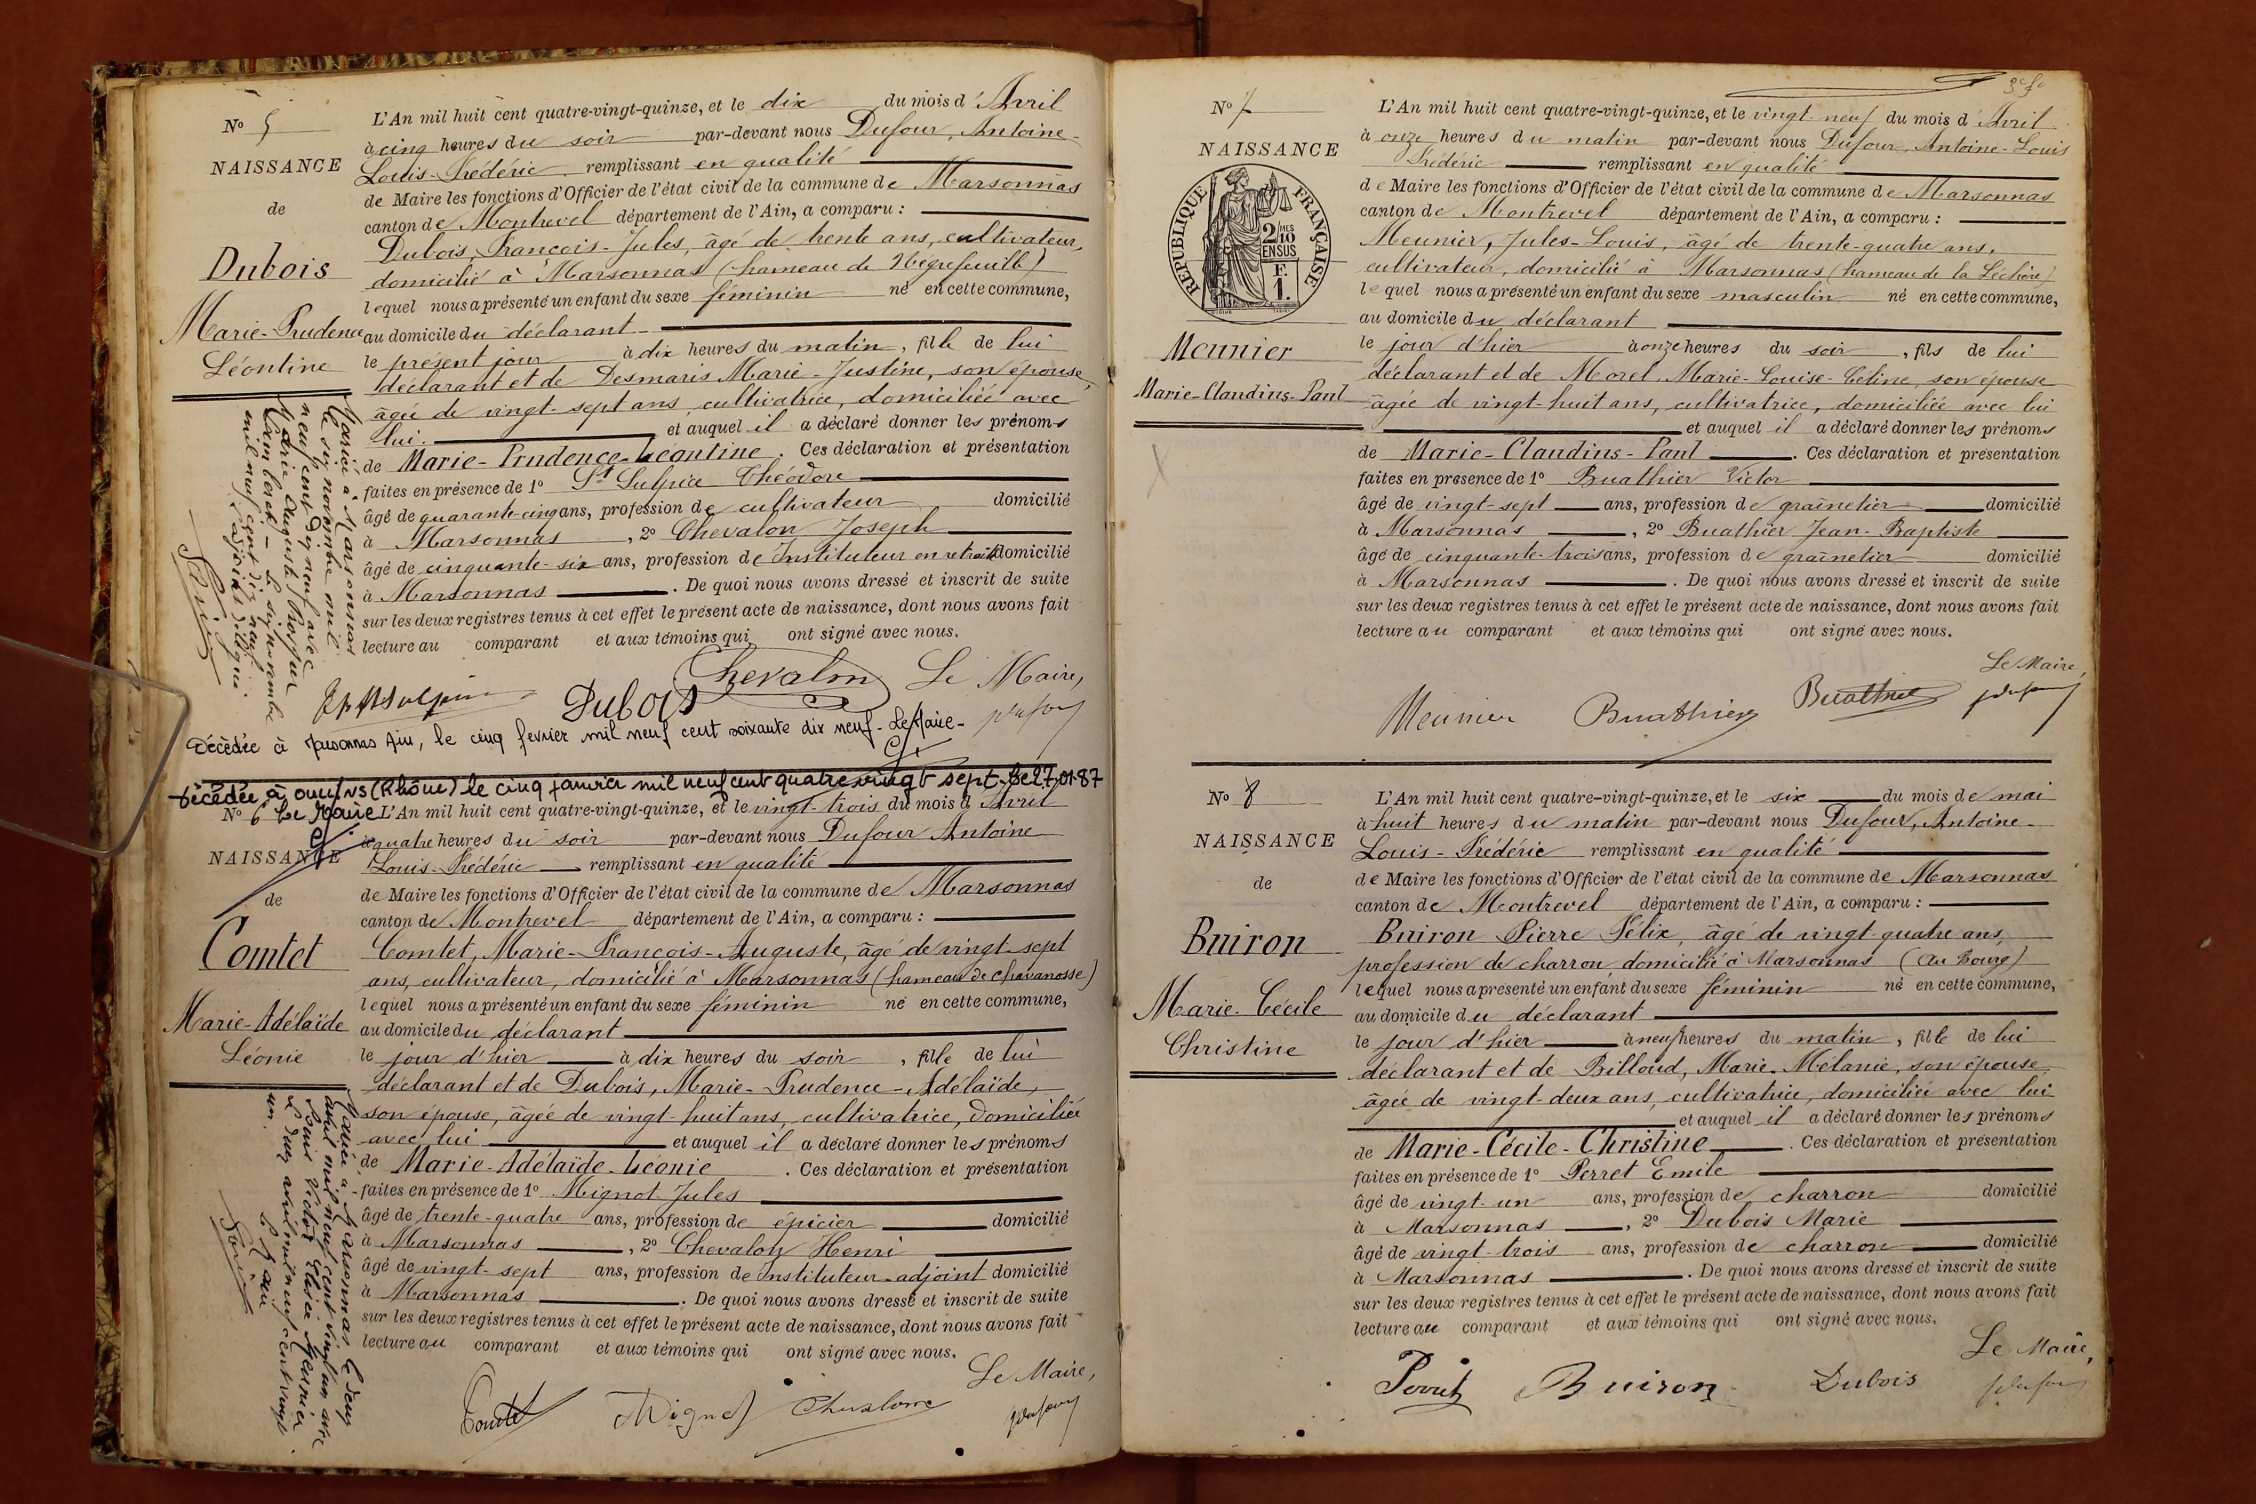 N° 5
NAISSANCE
de
Dubois
Marie-Prudence
Léontine
L'An mil huit cent quatre-vingt-quinze, et le dix du mois d'Avril
à cinq heures du soir par-devant nous Dufour, Antoine-
Louis-Frédéric remplissant en qualité
de Maire les fonctions d'Officier de l'état civil de la commune de Marsonnas
canton de Montrevel département de l'Ain, a comparu :
Dubois, François-Jules, âgé de trente ans, cultivateur,
domicilié à Marsonnas (hameau de Négrefeuille)
lequel nous a présenté un enfant du sexe féminin né en cette commune,
au domicile du déclarant
le présent jour à dix heures du matin, fille de lui
déclarant et de Desmaris Marie-Justine, son épouse,
âgée de vingt-sept ans, cultivatrice, domiciliée avec
lui. et auquel il a déclaré donner les prénoms
de Marie-Prudence-Léontine. Ces déclaration et présentation
faites en présence de 1° St Sulpice Théodore
âgé de quarante-cinq ans, profession de cultivateur domicilié
à Marsonnas, 2° Chevalon Joseph
âgé de cinquante-six ans, profession de Instituteur en retraite domicilié
à Marsonnas. De quoi nous avons dressé et inscrit de suite
sur les deux registres tenus à cet effet le présent acte de naissance, dont nous avons fait
lecture au comparant et aux témoins qui ont signé avec nous.
Mariée à Marsonnas
le six novembre mil
neuf cent dix neuf avec
Marie Auguste
le six novembre
mil neuf cent dix neuf
L'adjoint délégué
Dubois Chevalon Le Maire,
Décédée à Marsonnas Ain, le cinq fevrier mil neuf cent soixante dix neuf. Le Maire-
décédée à oullins (Rhône) le cinq janvier mil neuf cent quatre vingt sept. Le 27.01.87
Le Maire
N° 6
NAISSANCE
de
Comtet
Marie-Adélaïde
Léonie
L'An mil huit cent quatre-vingt-quinze, et le vingt-trois du mois d'Avril
à quatre heures du soir par-devant nous Dufour Antoine
Louis-Frédéric remplissant en qualité
de Maire les fonctions d'Officier de l'état civil de la commune de Marsonnas
canton de Montrevel département de l'Ain, a comparu :
Comtet, Marie-François-Auguste, âgé de vingt-sept
ans, cultivateur, domicilié à Marsonnas (hameau de Chavanosse)
lequel nous a présenté un enfant du sexe féminin né en cette commune,
au domicile du déclarant
le jour d'hier à dix heures du soir, fille de lui
déclarant et de Dubois, Marie-Prudence-Adélaïde,
son épouse, âgée de vingt-huit ans, cultivatrice, domiciliée
avec lui et auquel il a déclaré donner les prénoms
de Marie-Adélaïde-Léonie. Ces déclaration et présentation
faites en présence de 1° Mignot Jules
âgé de trente-quatre ans, profession de épicier domicilié
à Marsonnas, 2° Chevalon Henri
âgé de vingt-sept ans, profession de Instituteur-adjoint domicilié
à Marsonnas. De quoi nous avons dressé et inscrit de suite
sur les deux registres tenus à cet effet le présent acte de naissance, dont nous avons fait
lecture au comparant et aux témoins qui ont signé avec nous.
Mariée à Marsonnas le deux
avril mil neuf cent vingt un avec
Louis Victor Elisée Meunier
Le deux avril mil neuf cent vingt
un.
Le Maire
Comtet Mignot Chevalon Le Maire,
N° 7
NAISSANCE
RÉPUBLIQUE FRANÇAISE
2/10 MES
EN SUS
F.
1.
Meunier
Marie-Claudius-Paul
L'An mil huit cent quatre-vingt-quinze, et le vingt-neuf du mois d'Avril
à onze heures du matin par-devant nous Dufour, Antoine-Louis
Frédéric remplissant en qualité
de Maire les fonctions d'Officier de l'état civil de la commune de Marsonnas
canton de Montrevel département de l'Ain, a comparu :
Meunier, Jules-Louis, âgé de trente-quatre ans,
cultivateur, domicilié à Marsonnas (hameau de la Léchère)
lequel nous a présenté un enfant du sexe masculin né en cette commune,
au domicile du déclarant
le jour d'hier à onze heures du soir, fils de lui
déclarant et de Morel, Marie-Louise-Céline, son épouse
âgée de vingt-huit ans, cultivatrice, domiciliée avec lui
et auquel il a déclaré donner les prénoms
de Marie-Claudius-Paul. Ces déclaration et présentation
faites en présence de 1° Buathier Victor
âgé de vingt-sept ans, profession de grainetier domicilié
à Marsonnas, 2° Buathier Jean-Baptiste
âgé de cinquante-trois ans, profession de grainetier domicilié
à Marsonnas. De quoi nous avons dressé et inscrit de suite
sur les deux registres tenus à cet effet le présent acte de naissance, dont nous avons fait
lecture au comparant et aux témoins qui ont signé avec nous.
Le Maire,
Meunier Buathier Buathier
N° 8
NAISSANCE
de
Buiron
Marie-Cécile
Christine
L'An mil huit cent quatre-vingt-quinze, et le six du mois de mai
à huit heures du matin par-devant nous Dufour, Antoine-
Louis-Frédéric remplissant en qualité
de Maire les fonctions d'Officier de l'état civil de la commune de Marsonnas
canton de Montrevel département de l'Ain, a comparu :
Buiron Pierre Félix, âgé de vingt-quatre ans,
profession de charron, domicilié à Marsonnas (au Bourg)
lequel nous a présenté un enfant du sexe féminin né en cette commune,
au domicile du déclarant
le jour d'hier à neuf heures du matin, fille de lui
déclarant et de Billoud, Marie-Mélanie, son épouse,
âgée de vingt-deux ans, cultivatrice, domiciliée avec lui
et auquel il a déclaré donner les prénoms
de Marie-Cécile-Christine. Ces déclaration et présentation
faites en présence de 1° Perret Emile
âgé de vingt-un ans, profession de charron domicilié
à Marsonnas, 2° Dubois Marie
âgé de vingt-trois ans, profession de charron domicilié
à Marsonnas. De quoi nous avons dressé et inscrit de suite
sur les deux registres tenus à cet effet le présent acte de naissance, dont nous avons fait
lecture au comparant et aux témoins qui ont signé avec nous.
Le Maire,
Perret Buiron Dubois